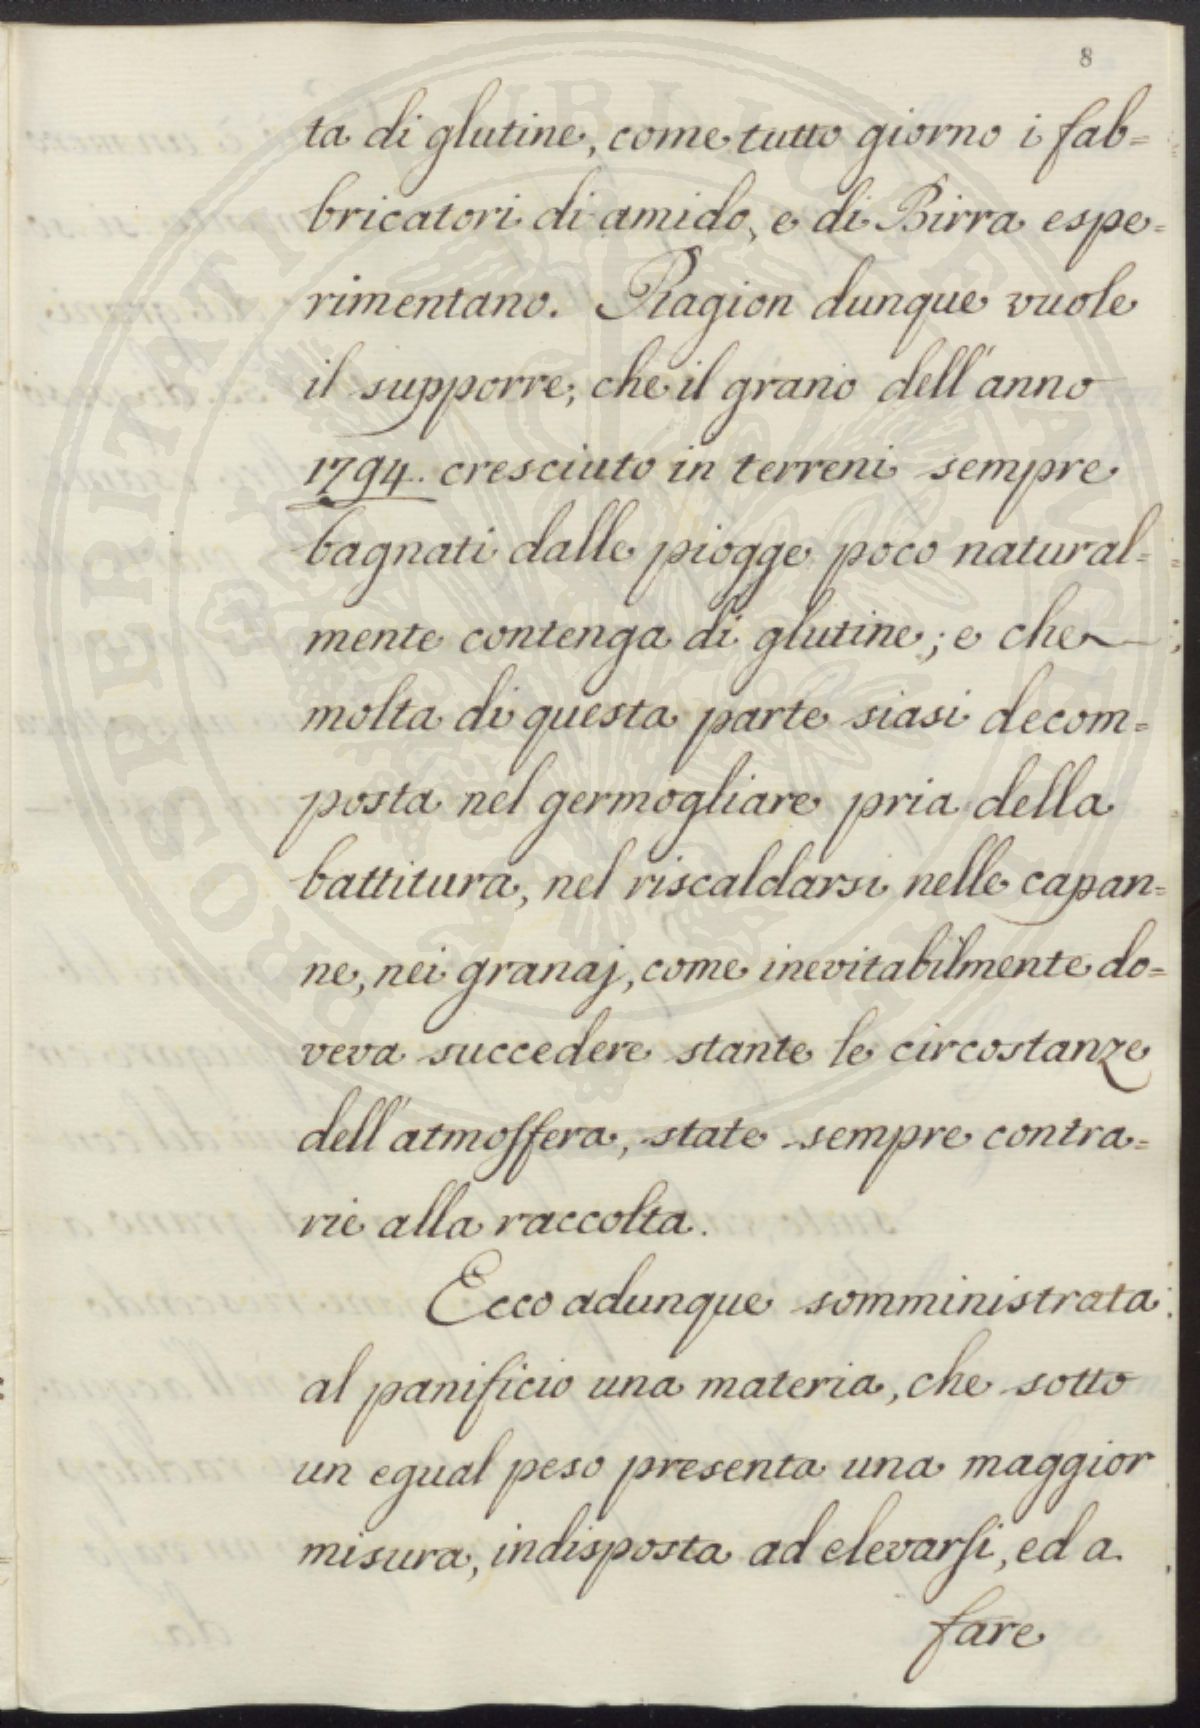 8
ta di glutine, come tutto giorno i fab=
bricatori di amido, e di Birra espe=
rimentano. Ragion dunque vuole
il supporre; che il grano dell'anno
1794. cresciuto in terreni sempre
bagnati dalle piogge poco natural=
mente contenga di glutine; e che
molta di questa parte siasi decom=
posta nel germogliare pria della
battitura, nel riscaldarsi nelle capan=
ne, nei granaj, come inevitabilmente do=
veva succedere stante le circostanze
dell'atmosfera, state sempre contra=
rie alla raccolta.
Ecco adunque somministrata
al panificio una materia, che sotto
un egual peso presenta una maggior
misura, indisposta ad elevarsi, ed a
fare